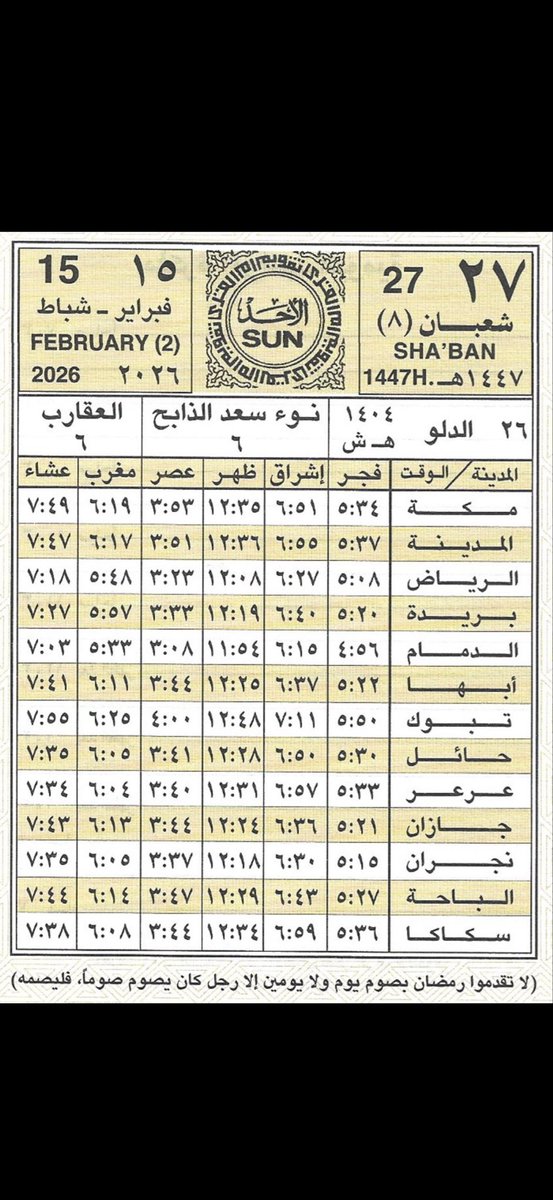 ٢٧ 27
شعبــان (٨)
SHA'BAN
١٤٤٧هـ. 1447H
الأحد
SUN
15 ١٥
فبراير - شباط
FEBRUARY (2)
2026 ٢٠٢٦
٢٦ الدلو ١٤٠٤ هـ ش نوء سعد الذابح ٦ العقارب ٦
المدينة / الوقت فجر إشراق ظهر عصر مغرب عشاء
مكة ٥:٣٤ ٦:٥١ ١٢:٣٥ ٣:٥٣ ٦:١٩ ٧:٤٩
المدينة ٥:٣٧ ٦:٥٥ ١٢:٣٦ ٣:٥١ ٦:١٧ ٧:٤٧
الرياض ٥:٠٨ ٦:٢٧ ١٢:٠٨ ٣:٢٣ ٥:٤٨ ٧:١٨
بريدة ٥:٢٠ ٦:٤٠ ١٢:١٩ ٣:٣٣ ٥:٥٧ ٧:٢٧
الدمام ٤:٥٦ ٦:١٥ ١١:٥٤ ٣:٠٨ ٥:٣٣ ٧:٠٣
أبها ٥:٢٢ ٦:٣٧ ١٢:٢٥ ٣:٤٤ ٦:١١ ٧:٤١
تبوك ٥:٥٠ ٧:١١ ١٢:٤٨ ٤:٠٠ ٦:٢٥ ٧:٥٥
حائل ٥:٣٠ ٦:٥٠ ١٢:٢٨ ٣:٤١ ٦:٠٥ ٧:٣٥
عرعر ٥:٣٣ ٦:٥٧ ١٢:٣١ ٣:٤٠ ٦:٠٤ ٧:٣٤
جازان ٥:٢١ ٦:٣٦ ١٢:٢٤ ٣:٤٤ ٦:١٣ ٧:٤٣
نجران ٥:١٥ ٦:٣٠ ١٢:١٨ ٣:٣٧ ٦:٠٥ ٧:٣٥
الباحة ٥:٢٧ ٦:٤٣ ١٢:٢٩ ٣:٤٧ ٦:١٤ ٧:٤٤
سكاكا ٥:٣٦ ٦:٥٩ ١٢:٣٤ ٣:٤٤ ٦:٠٨ ٧:٣٨
(لا تقدموا رمضان بصوم يوم ولا يومين إلا رجل كان يصوم صوماً، فليصمه)